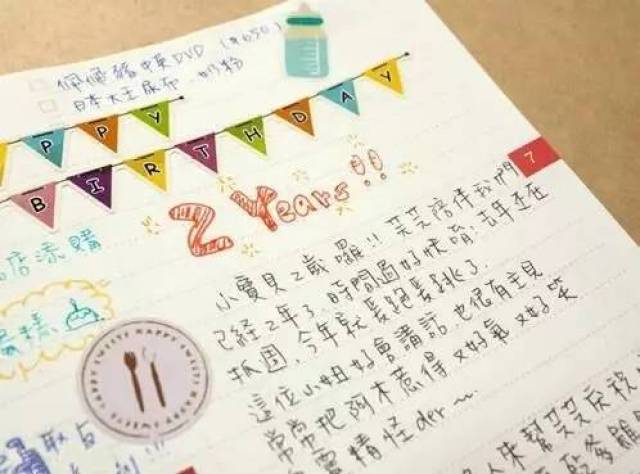 佩佩豬中英DVD (#650)
日本大王尿布、奶粉
PPY
BIRTHDAY
2 Years!!
7
店添購
小寶貝2歲囉!! 芠芠陪伴我們
已經2年了、時間過好快唷!去年還在
抓周,今年就長跑長跳了.
這位小姐好會講話,也很有主見
常常把阿木惹得又好氣又好笑
精怪der~
HAPPY SWEETY
取